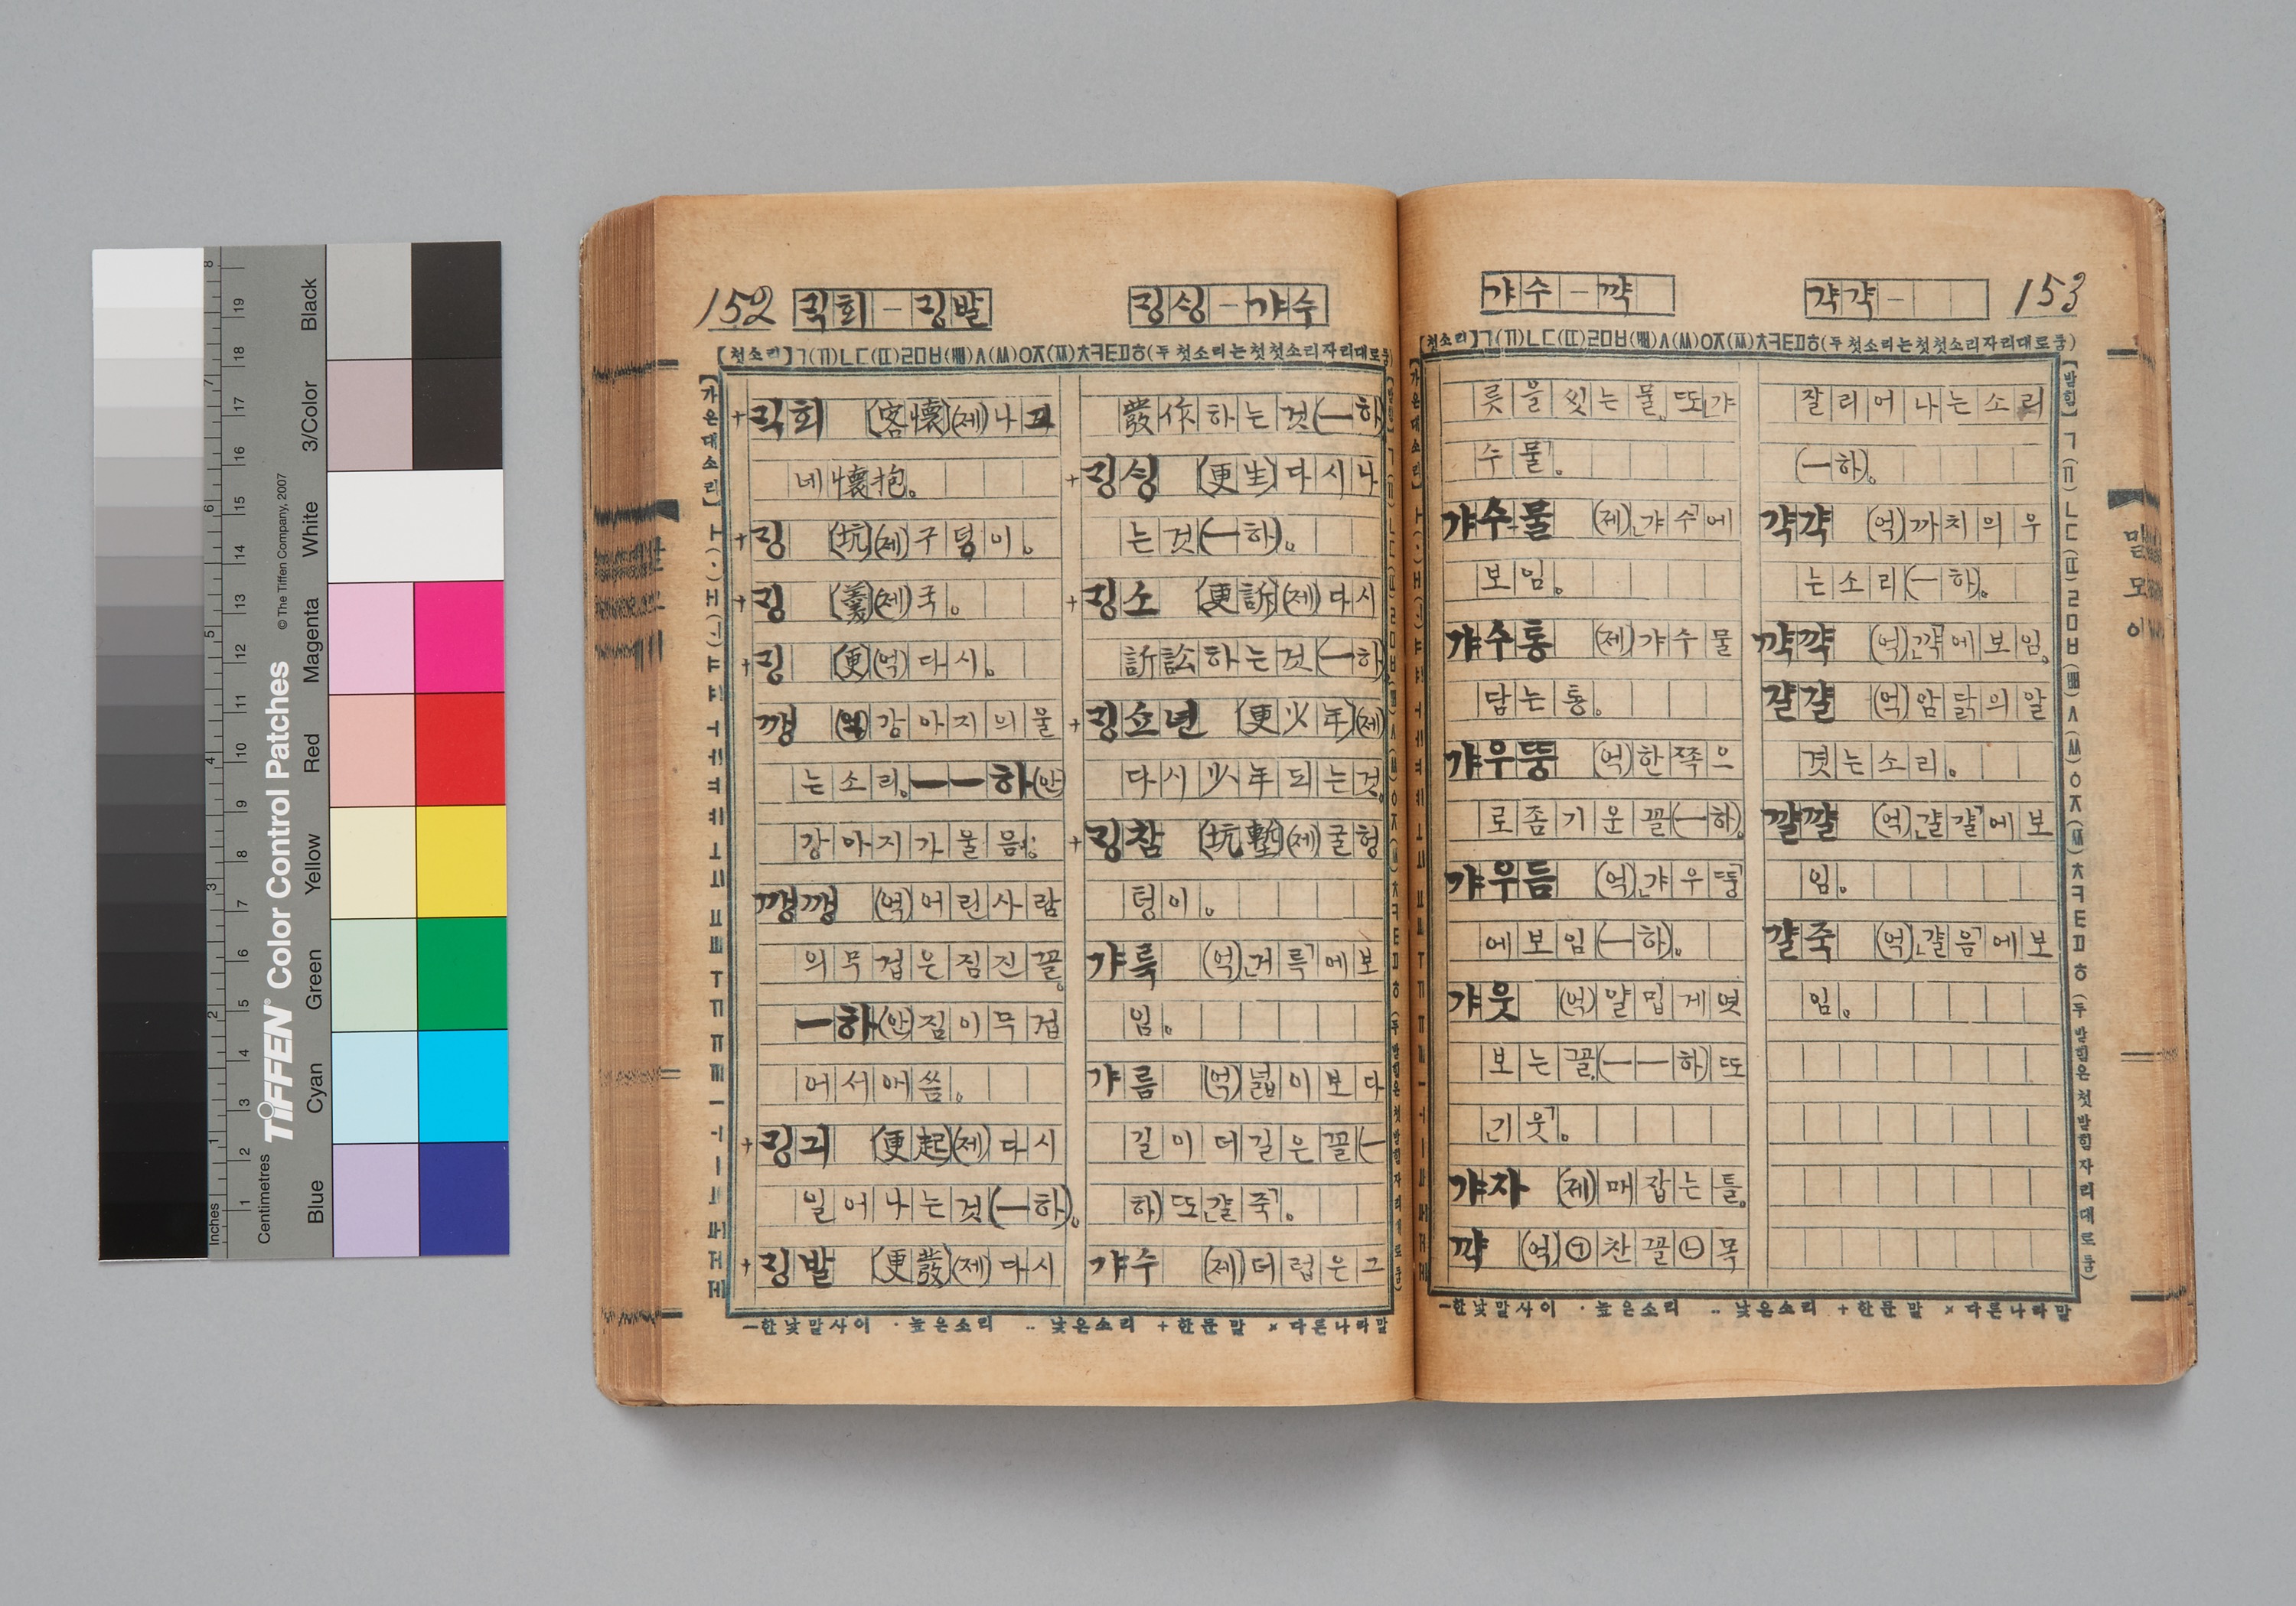 152 ᄀᆡᆨ회 — ᄀᆡᆼ발
ᄀᆡᆼ싱 — 갸수
【첫소리】ㄱ(ㄲ)ㄴㄷ(ㄸ)ㄹㅁㅂ(ㅃ)ㅅ(ㅆ)ㅇㅈ(ㅉ)ㅊㅋㅌㅍㅎ(두첫소리는첫첫소리자리대로둠)
+ᄀᆡᆨ회 (客懷)(제)나그
네懷抱。
+ᄀᆡᆼ (坑)(제)구덩이。
+ᄀᆡᆼ (羹)(제)국。
+ᄀᆡᆼ (更)(억)다시。
깽 (억)강아지의울
는소리。——하(안)
강아지가울음。
깽깽 (억)어린사람
의무겁은짐진꼴。
—하(안)짐이무겁
어서애씀。
+ᄀᆡᆼ긔 (更起)(제)다시
일어나는것(—하)。
+ᄀᆡᆼ발 (更發)(제)다시
發作하는것(—하)
+ᄀᆡᆼ싱 (更生)다시나
는것(—하)。
+ᄀᆡᆼ소 (更訴)(제)다시
訴訟하는것(—하)
+ᄀᆡᆼ쇼년 (更少年)(제)
다시少年되는것。
+ᄀᆡᆼ참 (坑塹)(제)굴헝
텅이。
갸륵 (억)「거륵」에보
임。
갸름 (억)넓이보다
길이더길은꼴(—
하)또「걀죽」。
갸수 (제)더럽은그
—한낱말사이 ·높은소리 ‥낮은소리 +한문말 ×다른나라말
갸수 — 꺅
갹갹 — 153
【첫소리】ㄱ(ㄲ)ㄴㄷ(ㄸ)ㄹㅁㅂ(ㅃ)ㅅ(ㅆ)ㅇㅈ(ㅉ)ㅊㅋㅌㅍㅎ(두첫소리는첫첫소리자리대로둠)
릇을씻는물。또「갸
수물」。
갸수-물 (제)「갸수」에
보임。
갸수통 (제)갸수물
담는통。
갸우뚱 (억)한쪽으
로좀기운꼴(—하)。
갸우듬 (억)「갸우뚱」
에보임(—하)。
갸웃 (억)얄밉게엿
보는꼴。(——하)또
「기웃」。
갸자 (제)매잡는틀。
꺅 (억)㉠찬꼴㉡목
잘리어나는소리
(—하)。
갹갹 (억)까치의우
는소리(—하)。
꺅꺅 (억)「꺅」에보임。
걀걀 (억)암닭의알
겻는소리。
꺌꺌 (억)「걀걀」에보
임。
걀죽 (억)「걀음」에보
임。
—한낱말사이 ·높은소리 ‥낮은소리 +한문말 ×다른나라말
말모이
TIFFEN Color Control Patches
© The Tiffen Company, 2007
Centimetres
Inches
Blue
Cyan
Green
Yellow
Red
Magenta
White
3/Color
Black